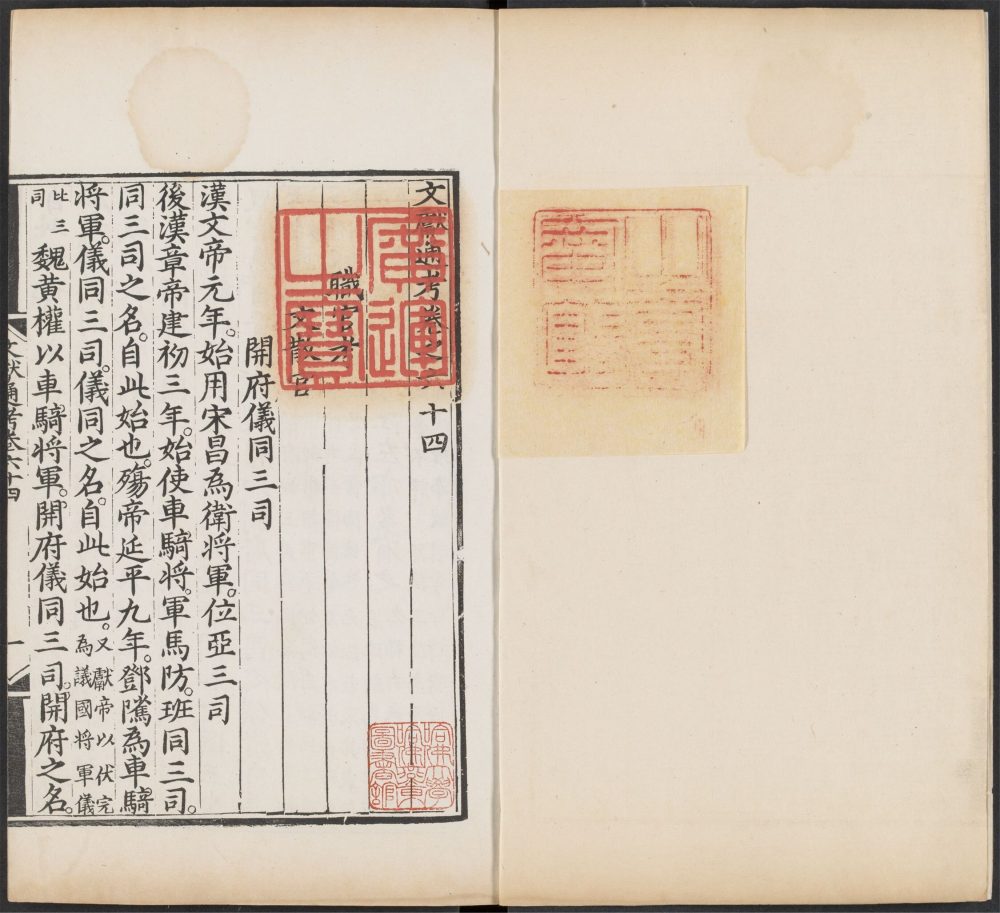 文獻通考卷之六十四
職官考
文散官
開府儀同三司
漢文帝元年。始用宋昌為衛將軍。位亞三司
後漢章帝建初三年。始使車騎將。軍馬防。班同三司。
同三司之名。自此始也。殤帝延平九年。鄧騭為車騎
將軍。儀同三司。儀同之名。自此始也。又獻帝以伏完為議國將軍儀
比三司 魏黃權以車騎將軍。開府儀同三司。開府之名。
文獻通考卷六十四
一